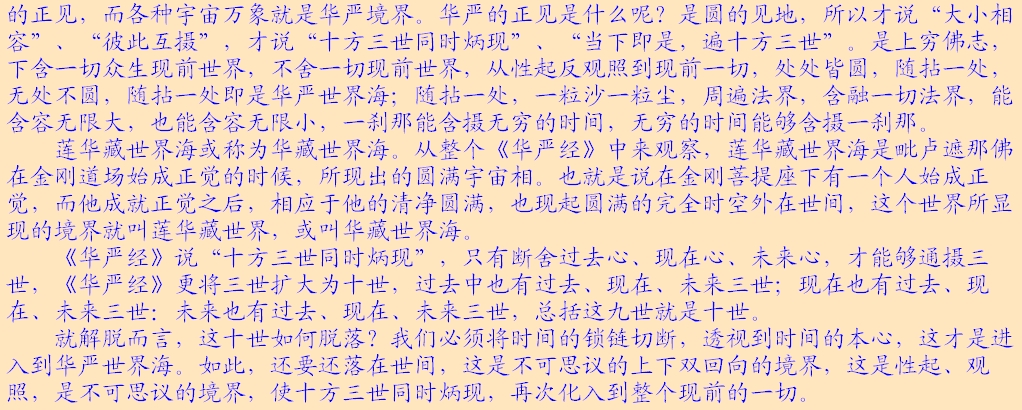 的正见，而各种宇宙万象就是华严境界。华严的正见是什么呢？是圆的见地，所以才说“大小相
容”、“彼此互摄”，才说“十方三世同时炳现”、“当下即是，遍十方三世”。是上穷佛志，
下含一切众生现前世界，不舍一切现前世界，从性起反观照到现前一切，处处皆圆，随拈一处，
无处不圆，随拈一处即是华严世界海；随拈一处，一粒沙一粒尘，周遍法界，含融一切法界，能
含容无限大，也能含容无限小，一刹那能含摄无穷的时间，无穷的时间能够含摄一刹那。
莲华藏世界海或称为华藏世界海。从整个《华严经》中来观察，莲华藏世界海是毗卢遮那佛
在金刚道场始成正觉的时候，所现出的圆满宇宙相。也就是说在金刚菩提座下有一个人始成正
觉，而他成就正觉之后，相应于他的清净圆满，也现起圆满的完全时空外在世间，这个世界所显
现的境界就叫莲华藏世界，或叫华藏世界海。
《华严经》说“十方三世同时炳现”，只有断舍过去心、现在心、未来心，才能够通摄三
世，《华严经》更将三世扩大为十世，过去中也有过去、现在、未来三世；现在也有过去、现
在、未来三世：未来也有过去、现在、未来三世，总括这九世就是十世。
就解脱而言，这十世如何脱落？我们必须将时间的锁链切断，透视到时间的本心，这才是进
入到华严世界海。如此，还要还落在世间，这是不可思议的上下双回向的境界，这是性起、观
照，是不可思议的境界，使十方三世同时炳现，再次化入到整个现前的一切。